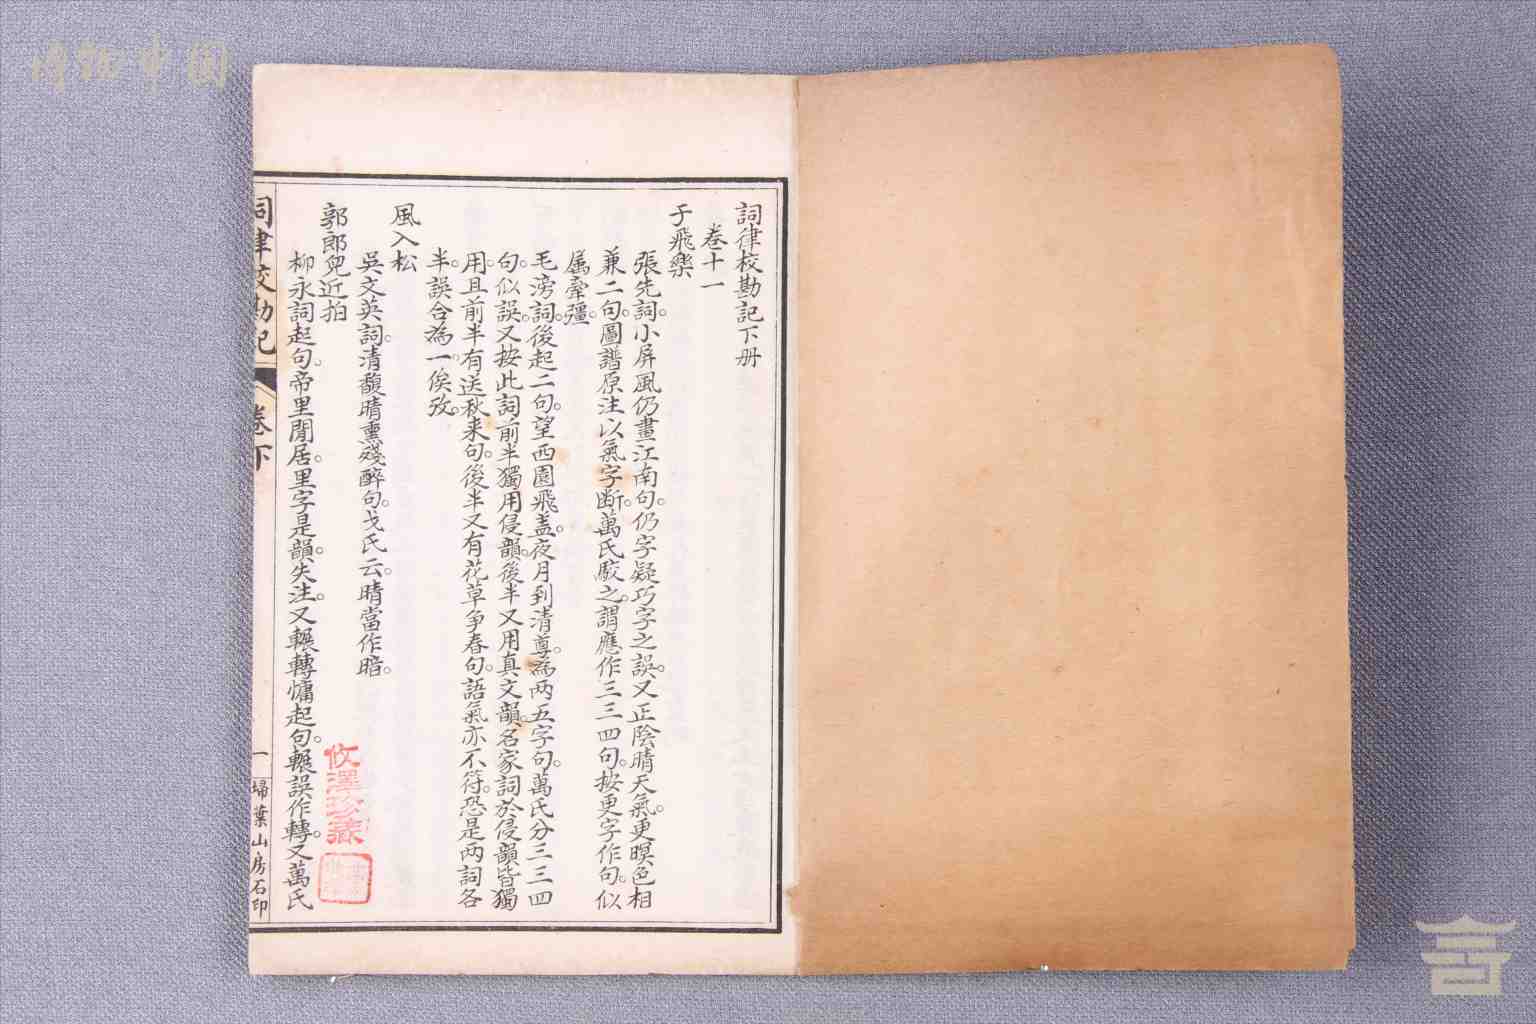 詞律校勘記下册
卷十一
于飛樂
張先詞。小屏風仍畫江南句。仍字疑巧字之誤。又正陰晴天氣。更暝色相
兼二句。圖譜原注以氣字斷。萬氏駁之。謂應作三三四句。按更字作句。似
屬牽彊。
毛滂詞。後起二句。望西園飛盖。夜月到清尊。為两五字句。萬氏分三三四
句。似誤。又按此詞前半獨用侵韻。後半又用真文韻。名家詞於侵韻皆獨
用。且前半有送秋来句。後半又有花草争春句。語氣亦不符。恐是两詞各
半。誤合為一。俟攷。
風入松
吳文英詞。清馥晴熏殘醉句。戈氏云。晴當作暗。
郭郎兒近拍
柳永詞起句。帝里閒居。里字是韻。失注。又輾轉慵起句。輾誤作轉。又萬氏
詞律校勘記
卷下
一
埽葉山房石印
攸澤珍藏
博物中国